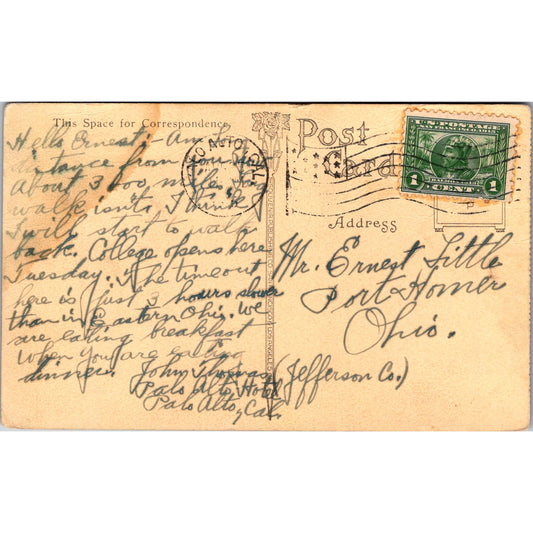 This Space for Correspondence
Hello Ernest;- Am
distance from you
About 3000 miles
walk isn't. I think
I will start to walk
back. College opens here
Tuesday. The time out
here is just 3 hours slower
than in Eastern Ohio. We
are eating breakfast
when you are eating
dinner. John Thomas
Palo Alto Hotel
Palo Alto, Cal.
PALO ALTO CAL.
Post
Card
Address
U.S. POSTAGE
SAN FRANCISCO 1915
1 CENT 1
Mr. Ernest Little
Port Homer
Ohio.
(Jefferson Co.)